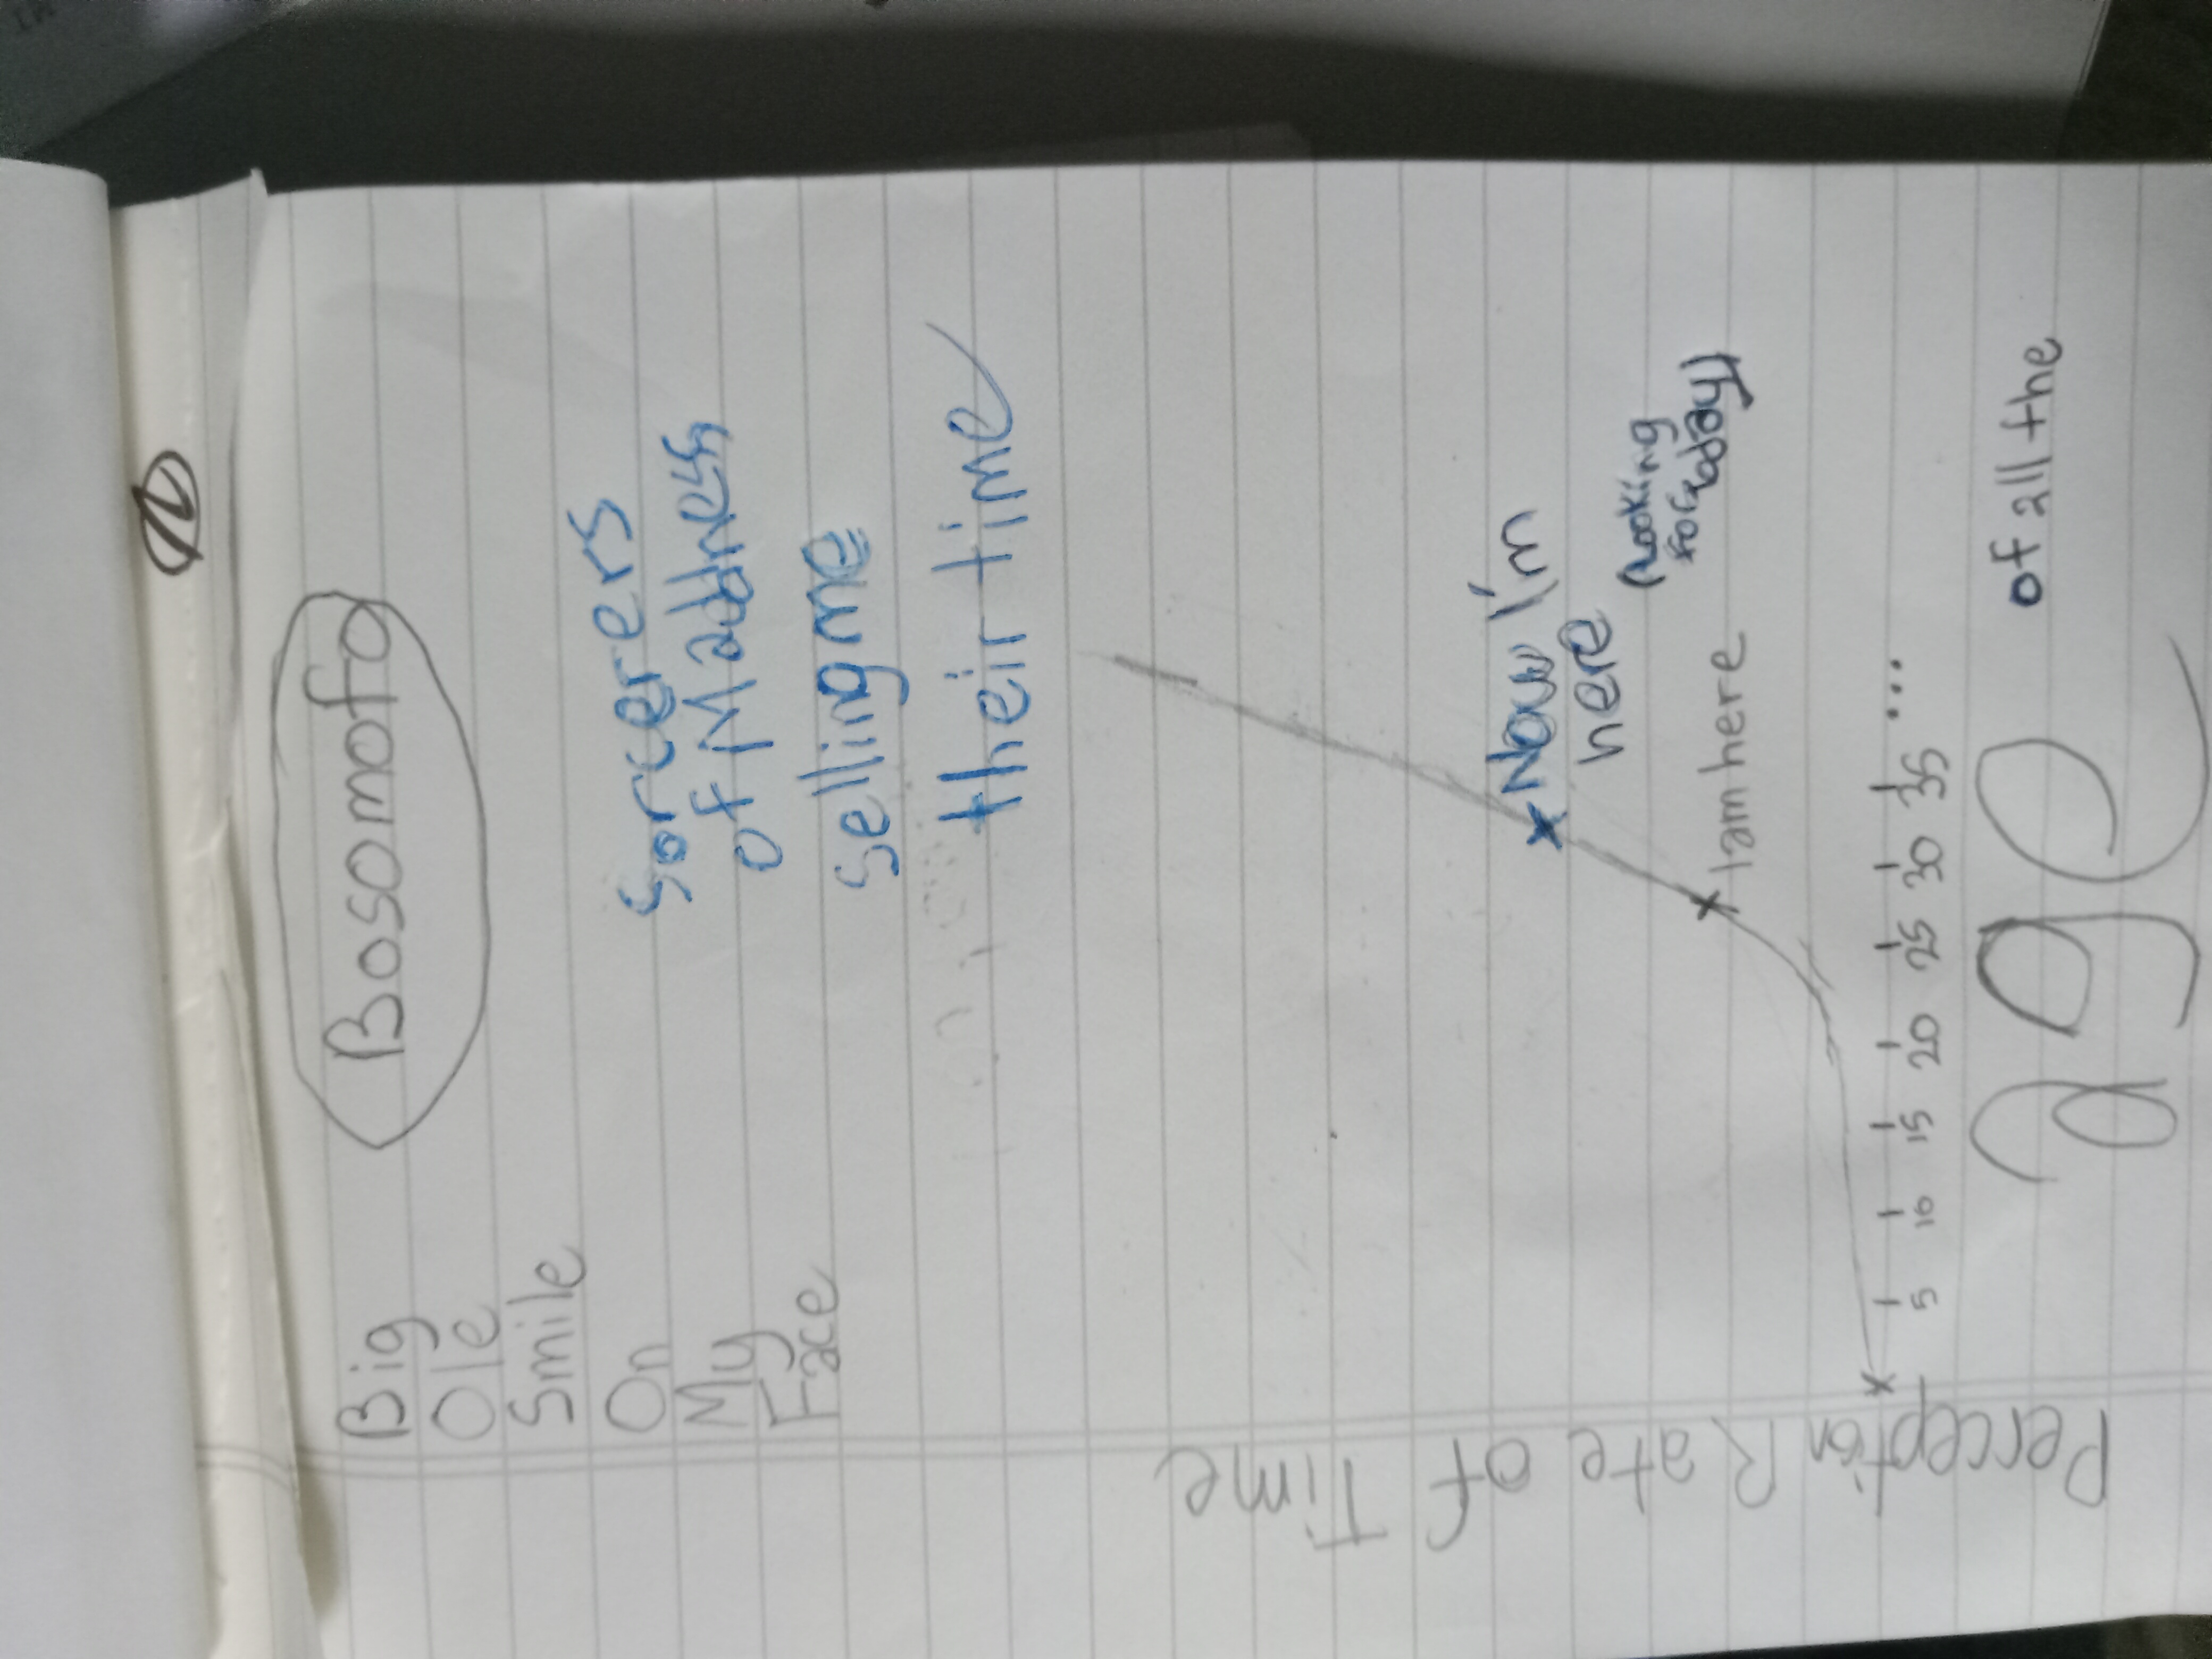 Bosomofo
Big
Ole
Smile
On
My
Face
Sorcerers
of Madness
selling me
their time
Perception Rate of Time
Now I'm
here
(looking
for today)
I am here
5 10 15 20 25 30 35 ...
age
of all the